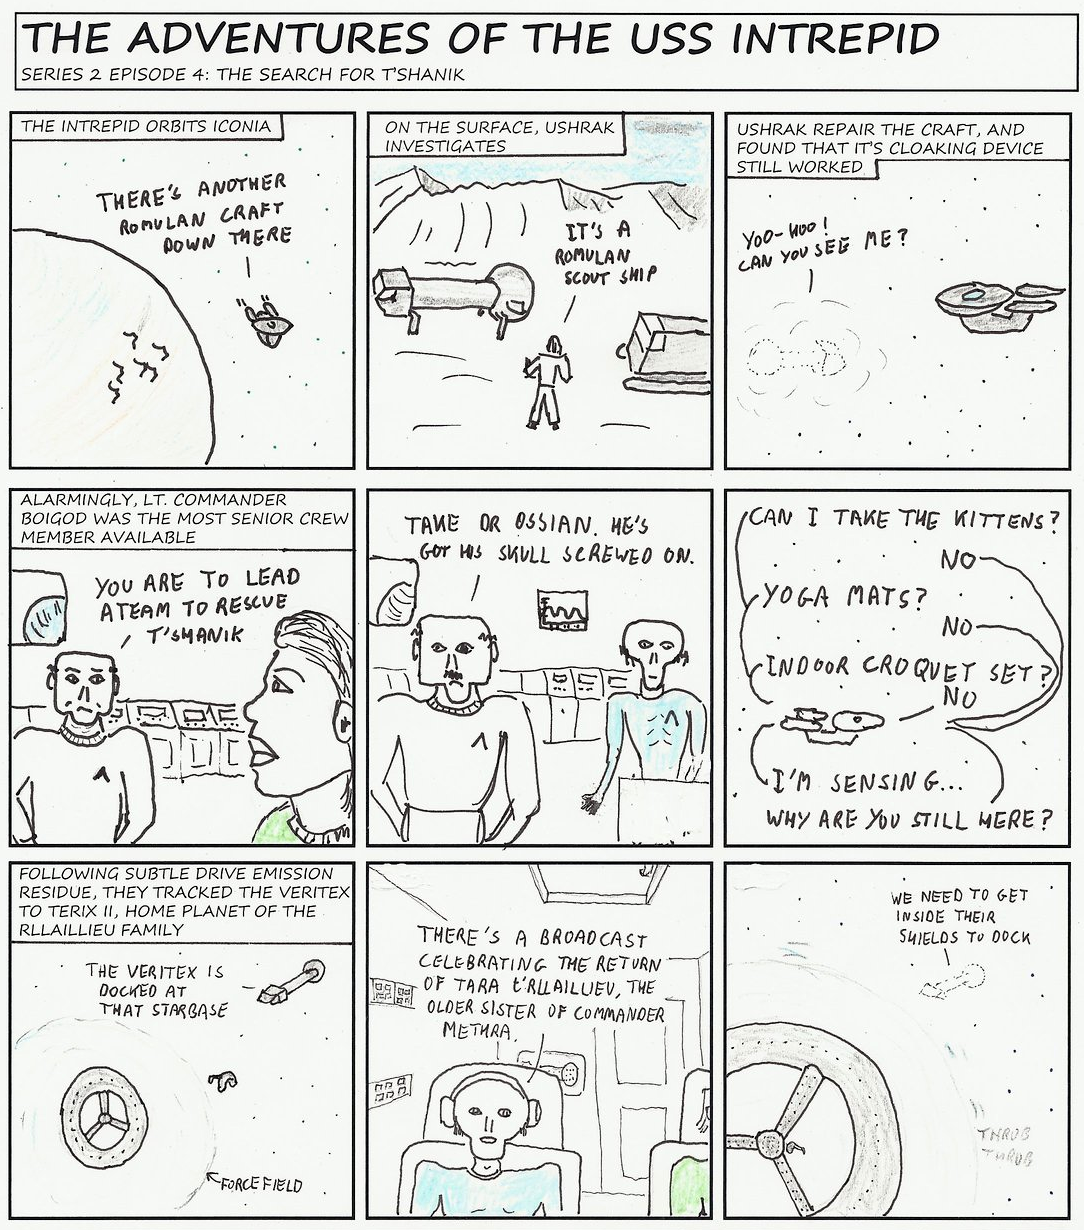 THE ADVENTURES OF THE USS INTREPID
SERIES 2 EPISODE 4: THE SEARCH FOR T'SHANIK
THE INTREPID ORBITS ICONIA
THERE'S ANOTHER
ROMULAN CRAFT
DOWN THERE
ON THE SURFACE, USHRAK
INVESTIGATES
IT'S A
ROMULAN
SCOUT SHIP
USHRAK REPAIR THE CRAFT, AND
FOUND THAT IT'S CLOAKING DEVICE
STILL WORKED
YOO-HOO!
CAN YOU SEE ME?
ALARMINGLY, LT. COMMANDER
BOIGOD WAS THE MOST SENIOR CREW
MEMBER AVAILABLE
YOU ARE TO LEAD
A TEAM TO RESCUE
T'SHANIK
TAKE DR OSSIAN. HE'S
GOT HIS SKULL SCREWED ON.
CAN I TAKE THE KITTENS?
NO
YOGA MATS?
NO
INDOOR CROQUET SET?
NO
I'M SENSING...
WHY ARE YOU STILL HERE?
FOLLOWING SUBTLE DRIVE EMISSION
RESIDUE, THEY TRACKED THE VERITEX
TO TERIX II, HOME PLANET OF THE
RLLAILLIEU FAMILY
THE VERITEX IS
DOCKED AT
THAT STARBASE
FORCEFIELD
THERE'S A BROADCAST
CELEBRATING THE RETURN
OF TARA t'RLLAILLIEU, THE
OLDER SISTER OF COMMANDER
METHRA.
WE NEED TO GET
INSIDE THEIR
SHIELDS TO DOCK
THROB
THROB